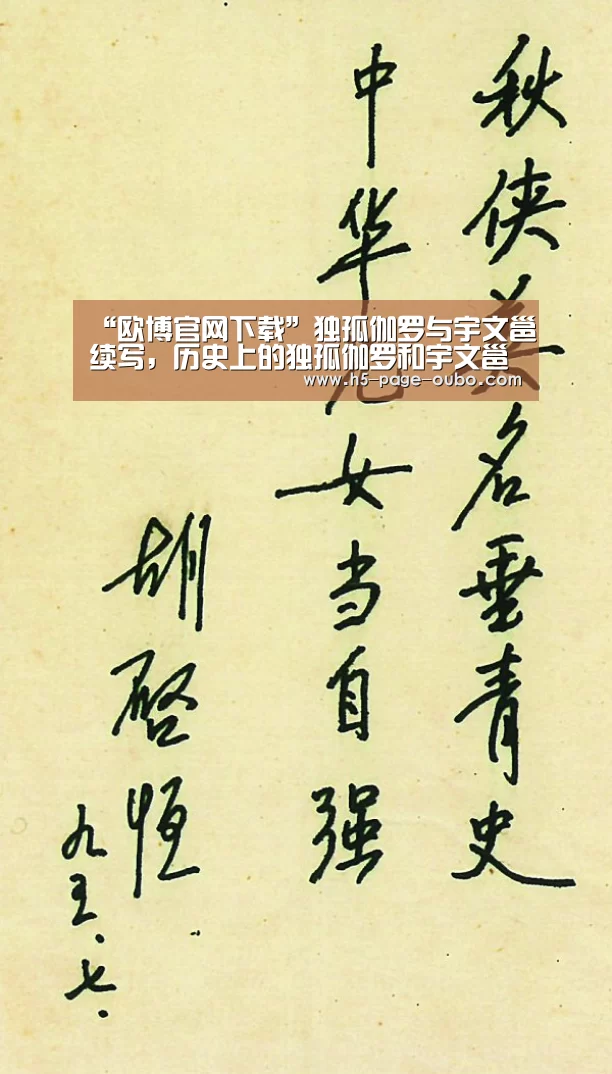 秋侠美名垂青史
中华儿女当自强
胡啓恒
九五.七.
“欧博官网下载”独孤伽罗与宇文邕
续写，历史上的独孤伽罗和宇文邕
www.h5-page-oubo.com